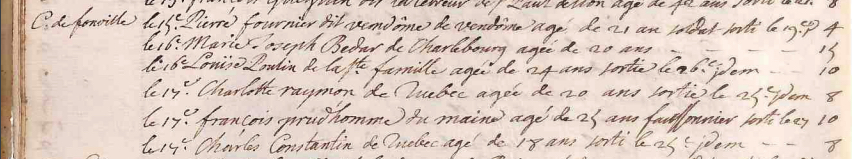 C. de fonville le 15e. Pierre fournier dit vendôme de vendôme agé de 21 an soldat sorti le 19e. 4
le 16e. Marie Joseph Bedar de Charlebourg agée de 20 ans - - - - 15
le 16e Louise Poulin de la ste famille agée de 24 ans sortie le 26e. jdem - - 10
le 17e. Charlotte raymon de Quebéc agée de 20 ans sortie le 25e. jdem 8
le 17e. françois prud'homme du maine agé de 25 ans faussonnier sorti le 27 10
le 17e. Charles Constantin de Quebec agé de 18 ans sorti le 25e. jdem - - 8